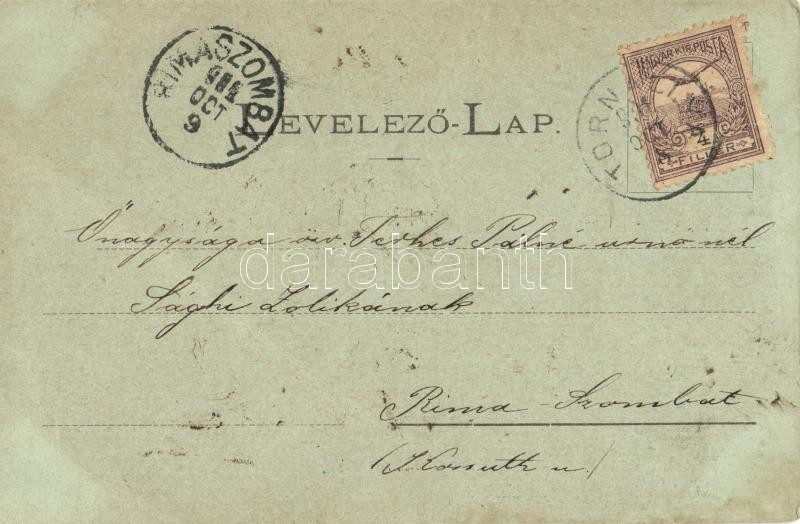 RIMASZOMBAT
OCT
9
LEVELEZŐ-LAP.
MAGYAR KIR. POSTA
4
FILLÉR
TORN
Őnagysága özv. Terhes Pálné urnőnél
darabanth
Sághi Zolikának
Rima-Szombat
(Kossuth u.)